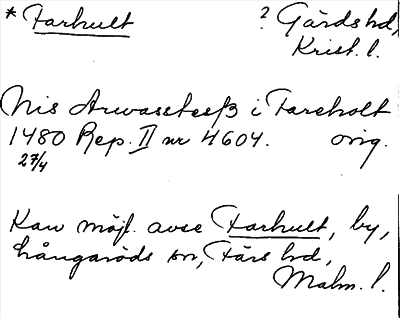 * Farhult ? Gärds hd,
Krist. l.
Nis Arwasstesß i Fareholt
1480 Rep. II nr 4604. orig.
27/4
Kan möjl. avse Farhult, by,
Långaröds sn, Färs hd,
Malm. l.